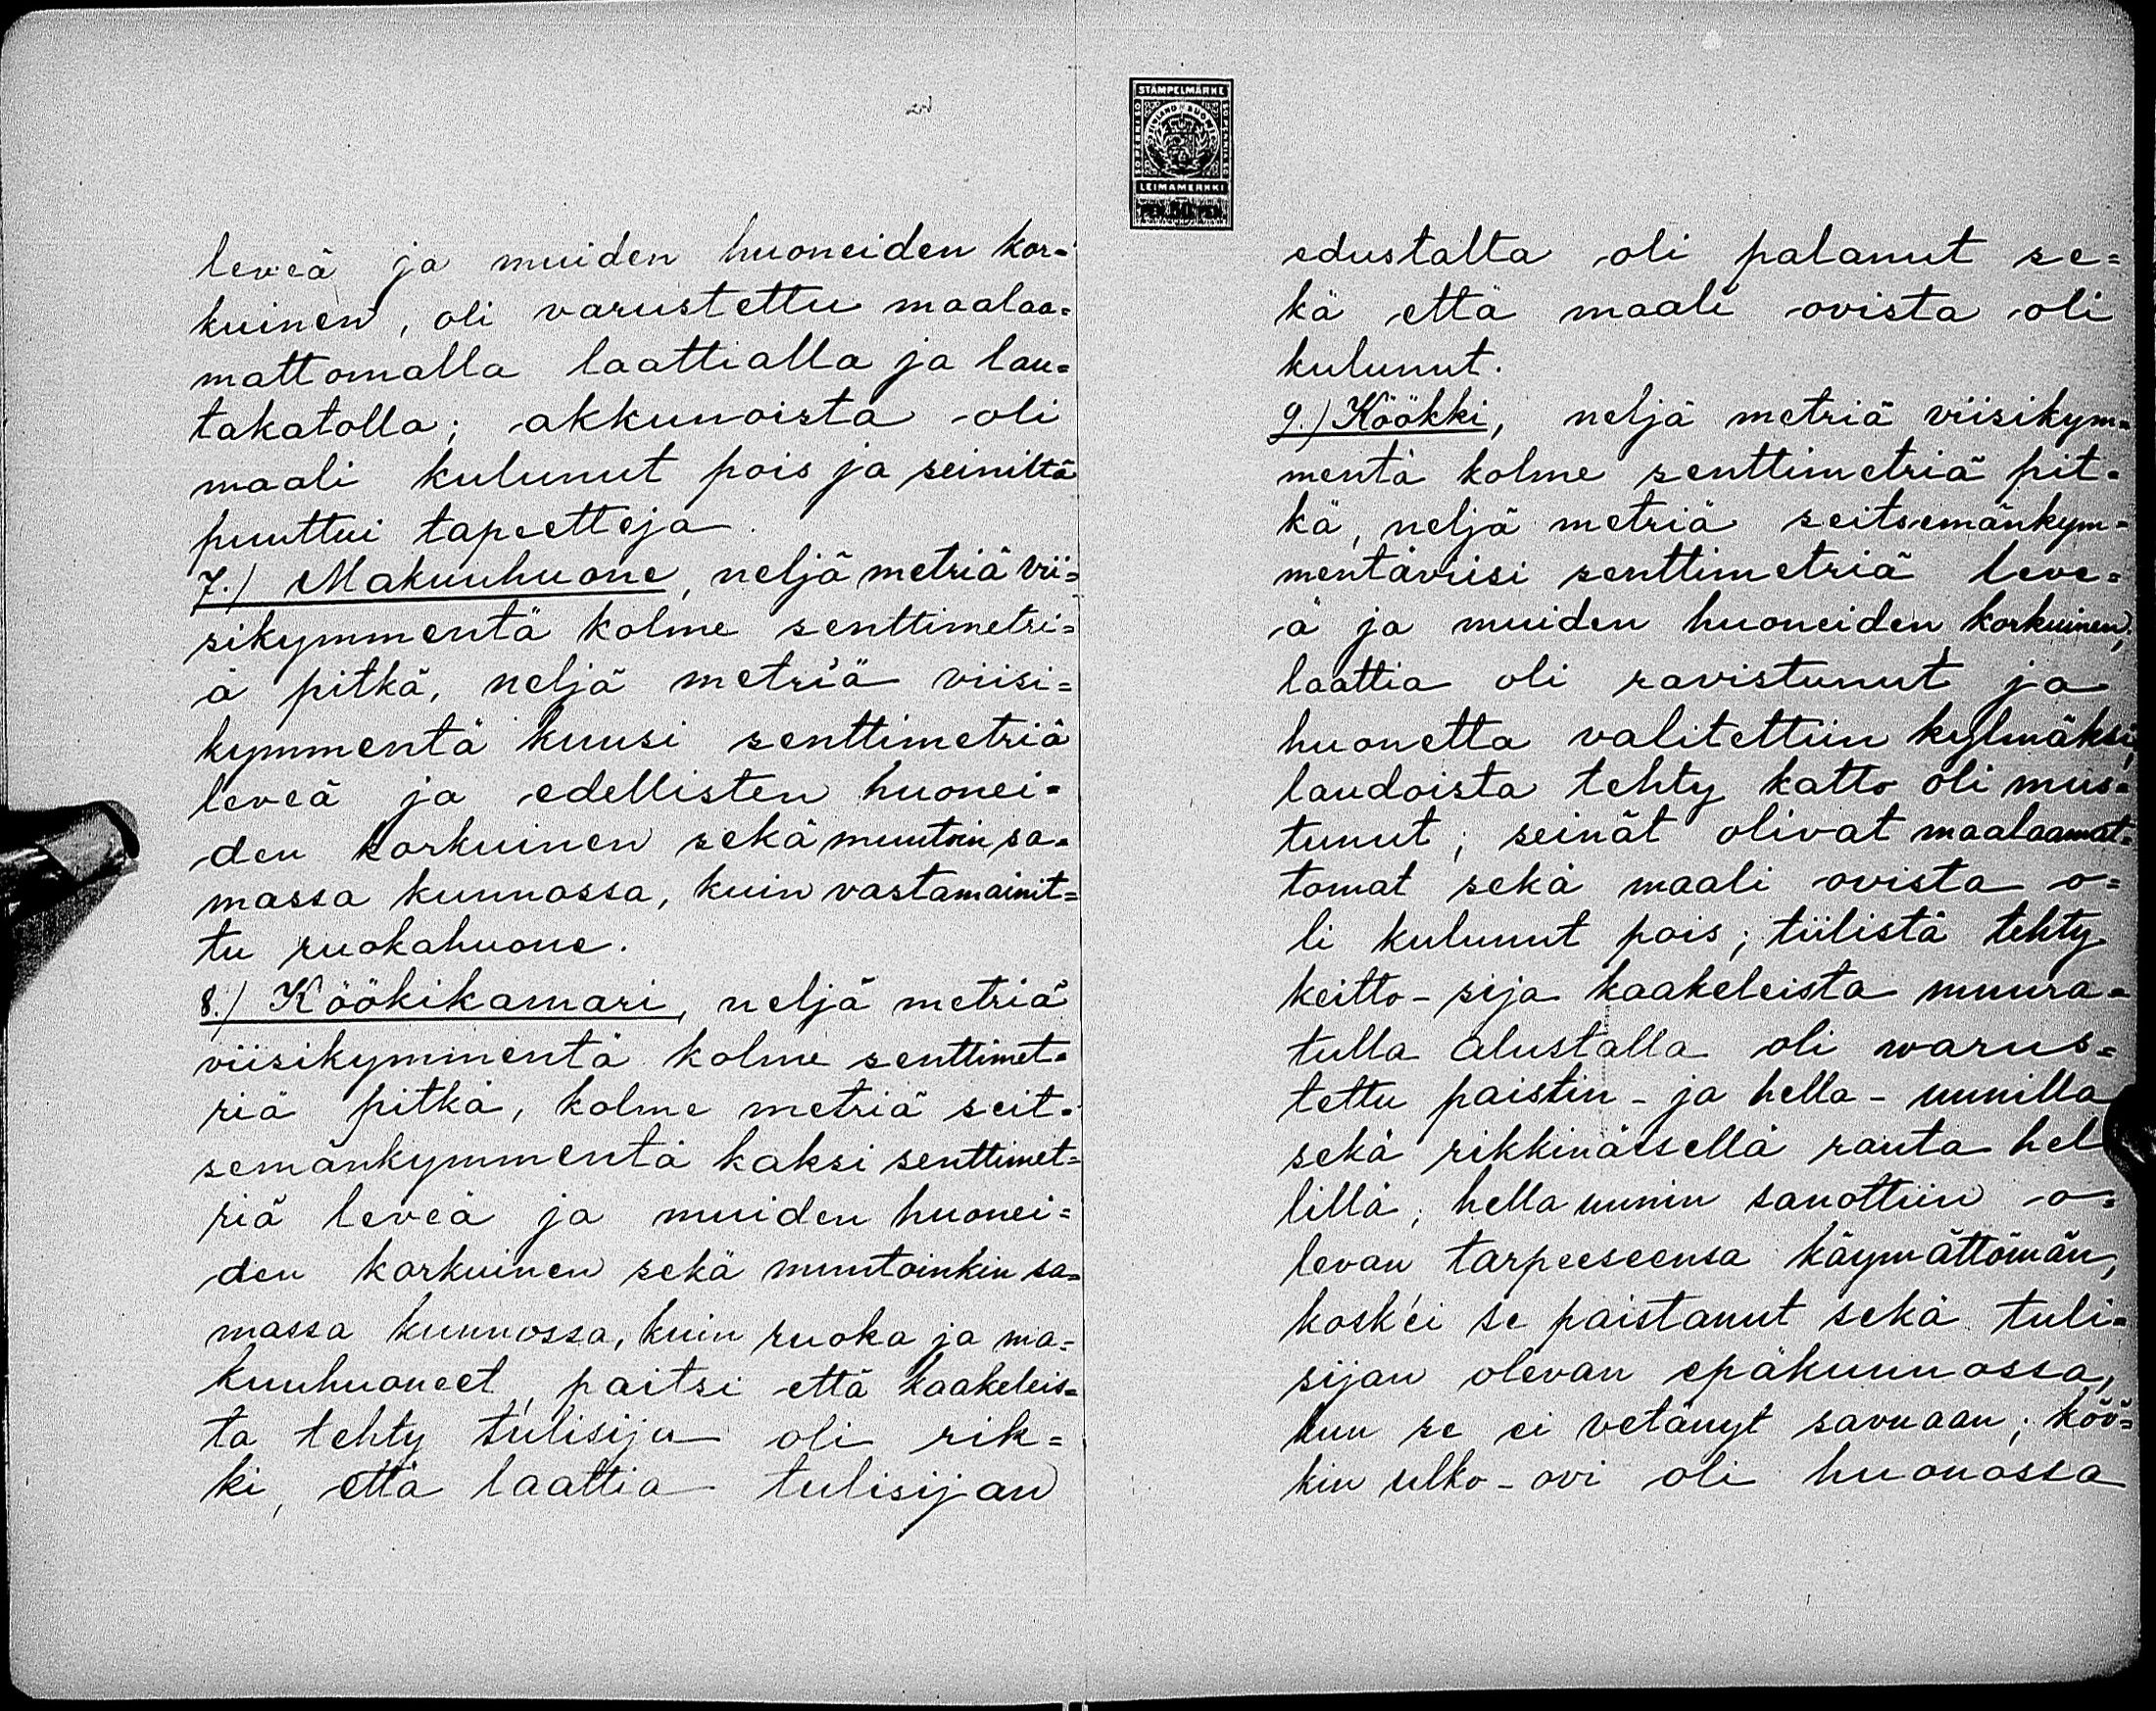 leveä ja muiden huoneiden kor=
kuinen, oli varustettu maalaa=
mattomalla laattialla ja lau=
takatolla; akkunoista oli
maali kulunut pois ja seiniltä
puuttui tapeetteja.
7.) Makuuhuone, neljä metriä vii=
sikymmentä kolme senttimetri=
ä pitkä, neljä metriä viisi=
kymmentä kuusi senttimetriä
leveä ja edellisten huonei=
den korkuinen sekä muutoin sa=
massa kunnossa, kuin vastamainit=
tu ruokahuone.
8.) Köökikamari, neljä metriä
viisikymmentä kolme senttimet=
riä pitkä, kolme metriä seit=
semänkymmentä kaksi senttimet=
riä leveä ja muiden huonei=
den korkuinen sekä muutoinkin sa=
massa kunnossa, kuin ruoka ja ma=
kuuhuoneet, paitsi että kaakeleis=
ta tehty tulisija oli rik=
ki, että laattia tulisijan
STÄMPELMÄRKE
FINLAND SUOMI
50 PENNIÄ
LEIMAMERKKI
PEN. 50 PEN.
edustalta oli palanut se=
kä että maali ovista oli
kulunut.
9.) Köökki, neljä metriä viisikym=
mentä kolme senttimetriä pit=
kä, neljä metriä seitsemänkym=
mentäviisi senttimetriä leve=
ä ja muiden huoneiden korkuinen;
laattia oli ravistunut ja
huonetta valitettiin kylmäksi;
laudoista tehty katto oli mus=
tunut; seinät olivat maalaamat=
tomat sekä maali ovista o=
li kulunut pois; tiilistä tehty
keitto-sija kaakeleista muura=
tulla alustalla oli warus=
tettu paistin- ja hella-uunilla
sekä rikkinäisellä rauta hel
lillä; hella uunin sanottiin o=
levan tarpeeseensa käymättömän,
kosk'ei se paistanut sekä tuli=
sijan olevan epäkunnossa,
kun se ei vetänyt savuaan; köö=
kin ulko-ovi oli huonossa